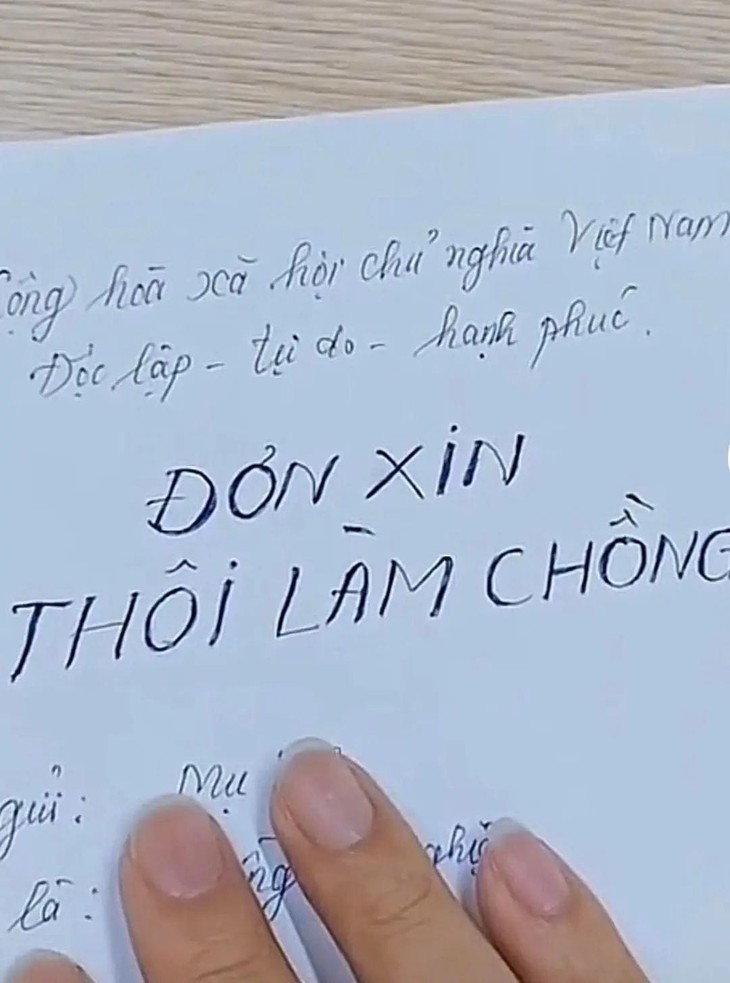 Cộng hoà xã hội chủ nghĩa Việt Nam
Độc lập - tự do - hạnh phúc.
ĐƠN XIN
THÔI LÀM CHỒNG
gửi: Mụ
là: